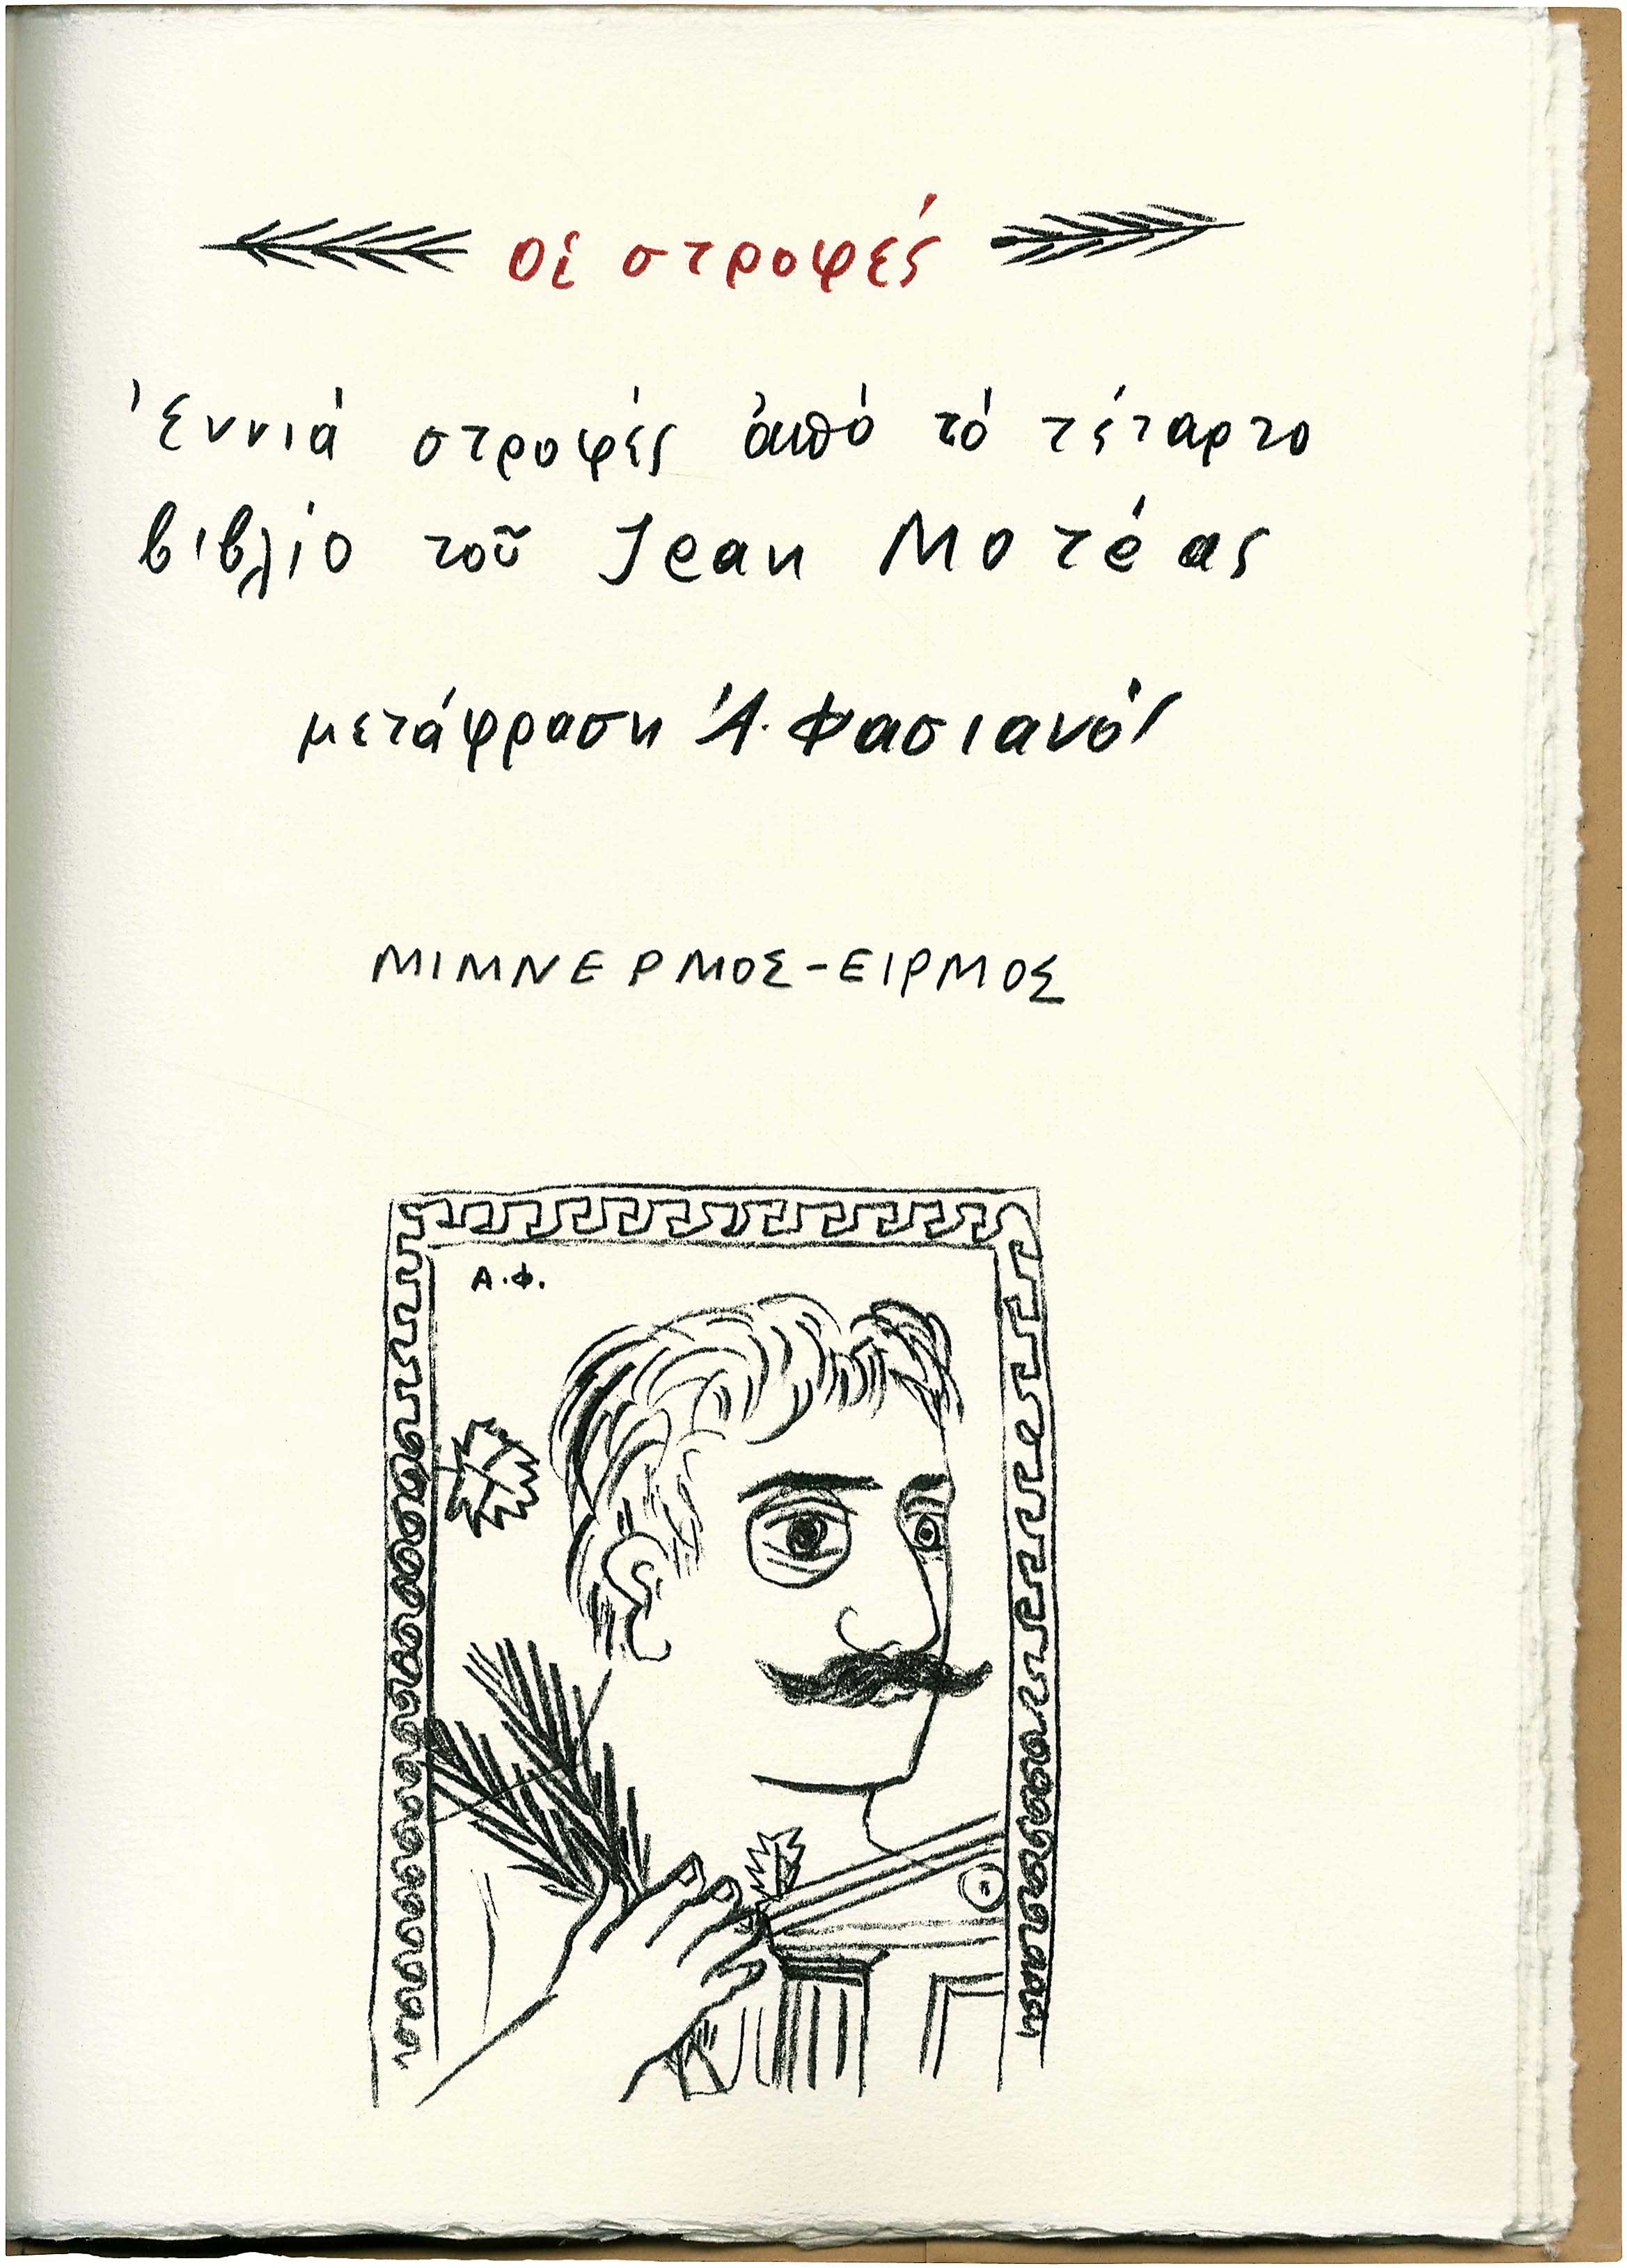 οἱ στροφές
ἐννιά στροφές ἀπό τό τέταρτο
βιβλίο τοῦ Jean Μοτέας
μετάφραση Ἀ. Φασιανός
ΜΙΜΝΕΡΜΟΣ-ΕΙΡΜΟΣ
Α.Φ.